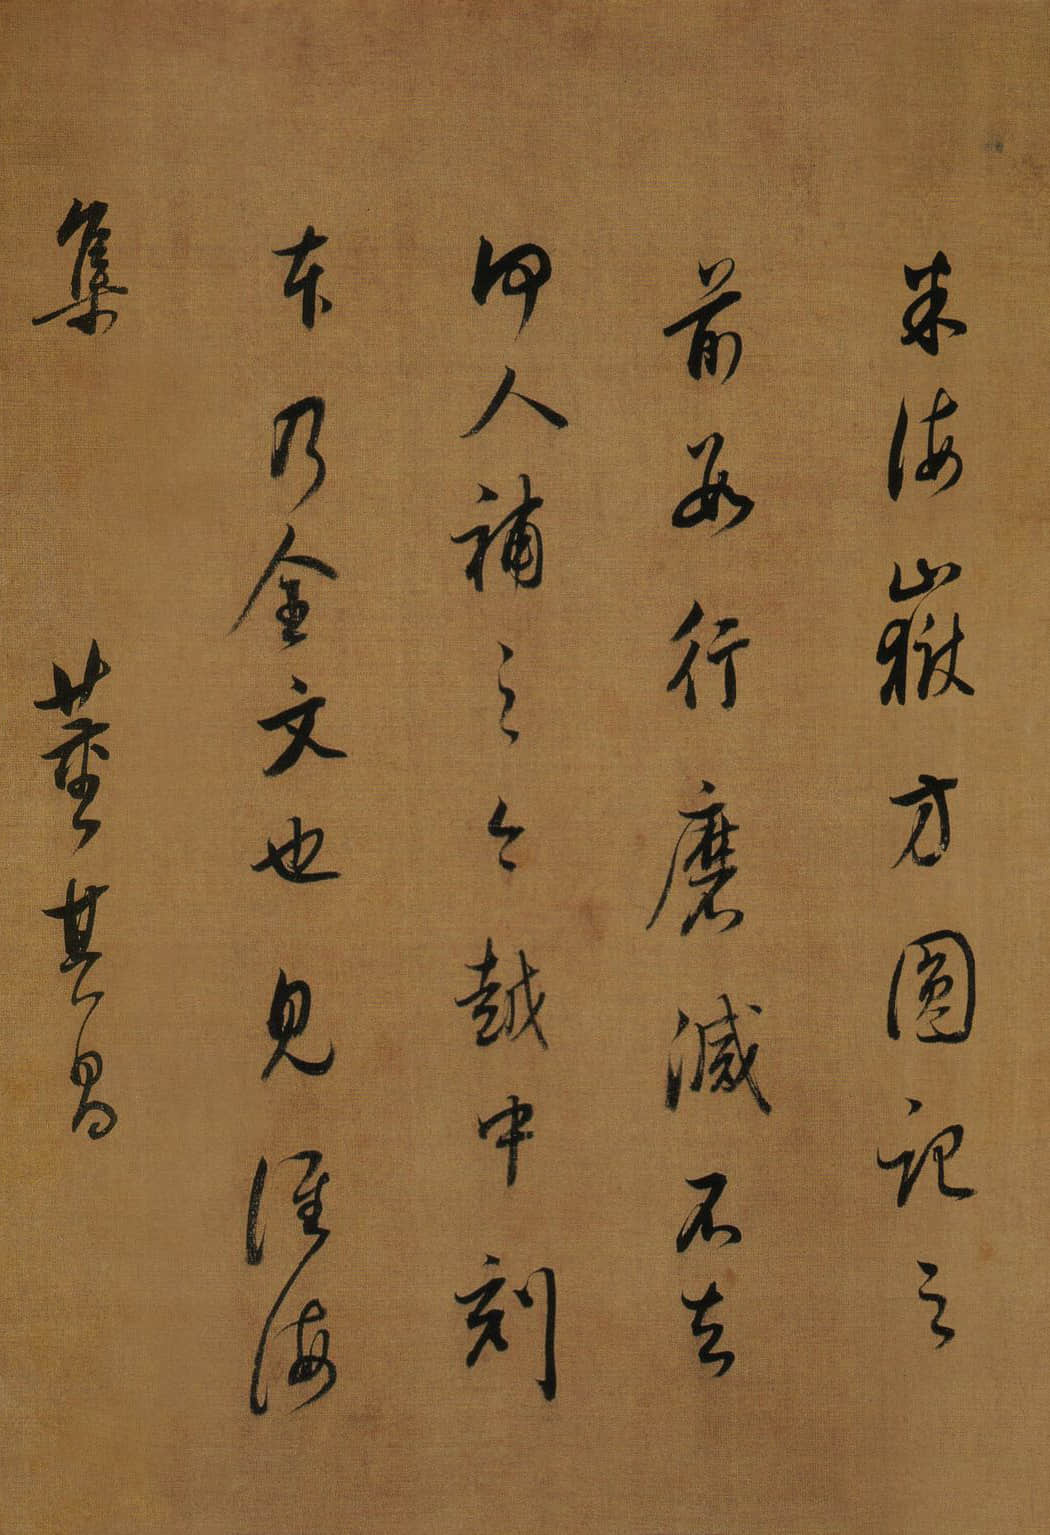 米海嶽方圓記之
前數行磨滅不知
何人補之今越中刻
本乃全文也見淮海
集
董其昌